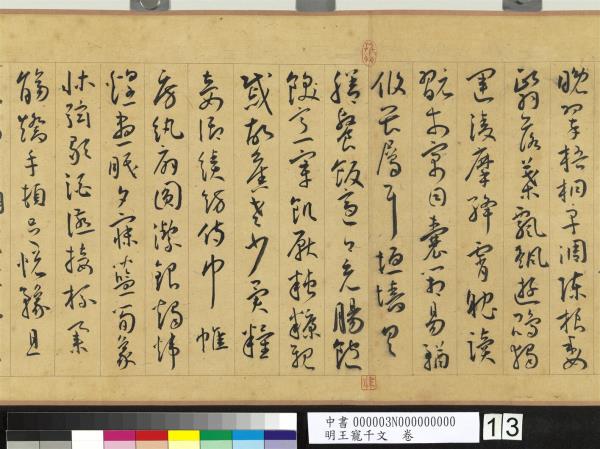 晚翠梧桐早凋陳根委
翳落葉飄颻遊鵾獨
運淩摩絳霄耽讀
翫市寓目囊箱易輶
攸畏屬耳垣墻具
膳飡飯適口充腸飽
飫烹宰飢厭糟糠親
戚故舊老少異糧
妾御績紡侍巾帷
房紈扇圓潔銀燭煒
煌晝眠夕寐藍笋象
床弦歌酒讌接杯舉
觴矯手頓足悅豫且
中書 000003N000000000
明王寵千文 卷
13